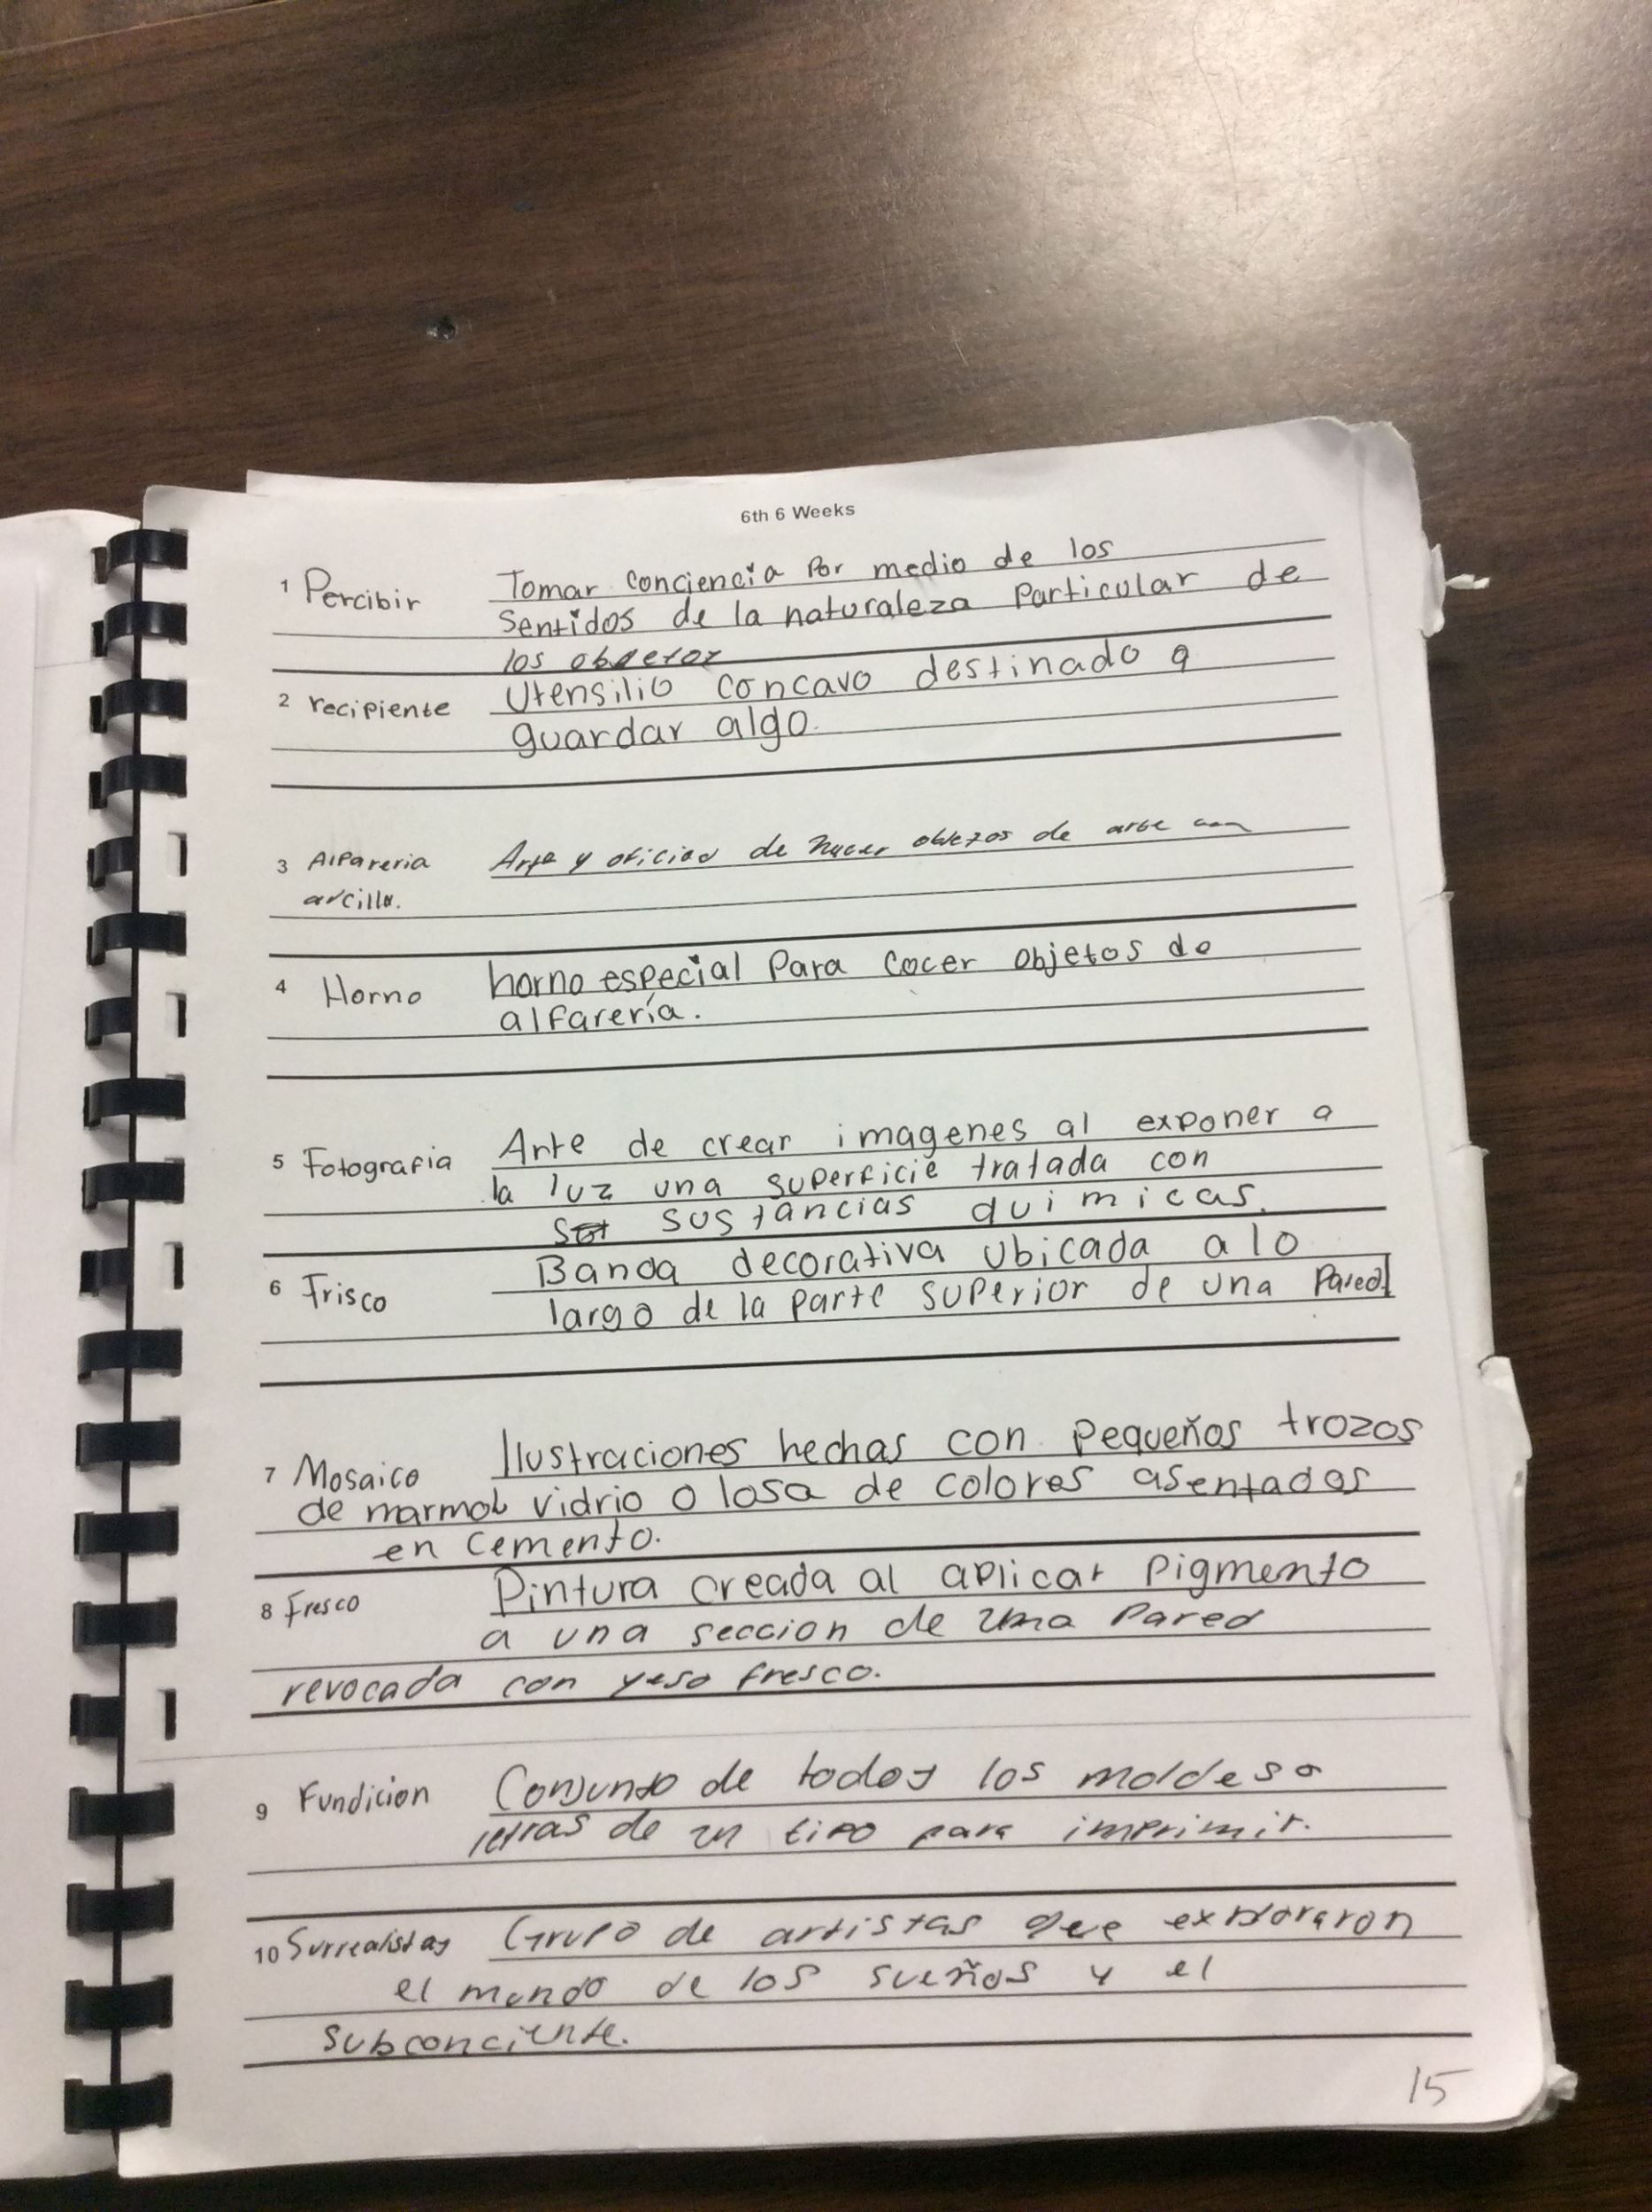 6th 6 Weeks
1 Percibir Tomar conciencia Por medio de los
Sentidos de la naturaleza Particular de
los
2 recipiente Utensilio concavo destinado a
guardar algo.
3 Alfareria Arte y oficios de hacer objetos de arte con
arcilla.
4 Horno horno especial Para cocer objetos de
alfarería.
5 Fotografia Arte de crear imagenes al exponer a
la luz una superficie tratada con
sustancias quimicas.
6 Frisco Banda decorativa Ubicada a lo
largo de la parte superior de una Pared
7 Mosaico Ilustraciones hechas con Pequeños trozos
de marmol vidrio o losa de colores asentados
en cemento.
8 Fresco Pintura creada al aplicar Pigmento
a una seccion de una Pared
revocada con yeso fresco.
9 Fundicion Conjunto de todos los moldes o
letras de un tipo para imprimir.
10 Surrealistas Grupo de artistas que exploraron
el mundo de los sueños y el
subconciente.
15